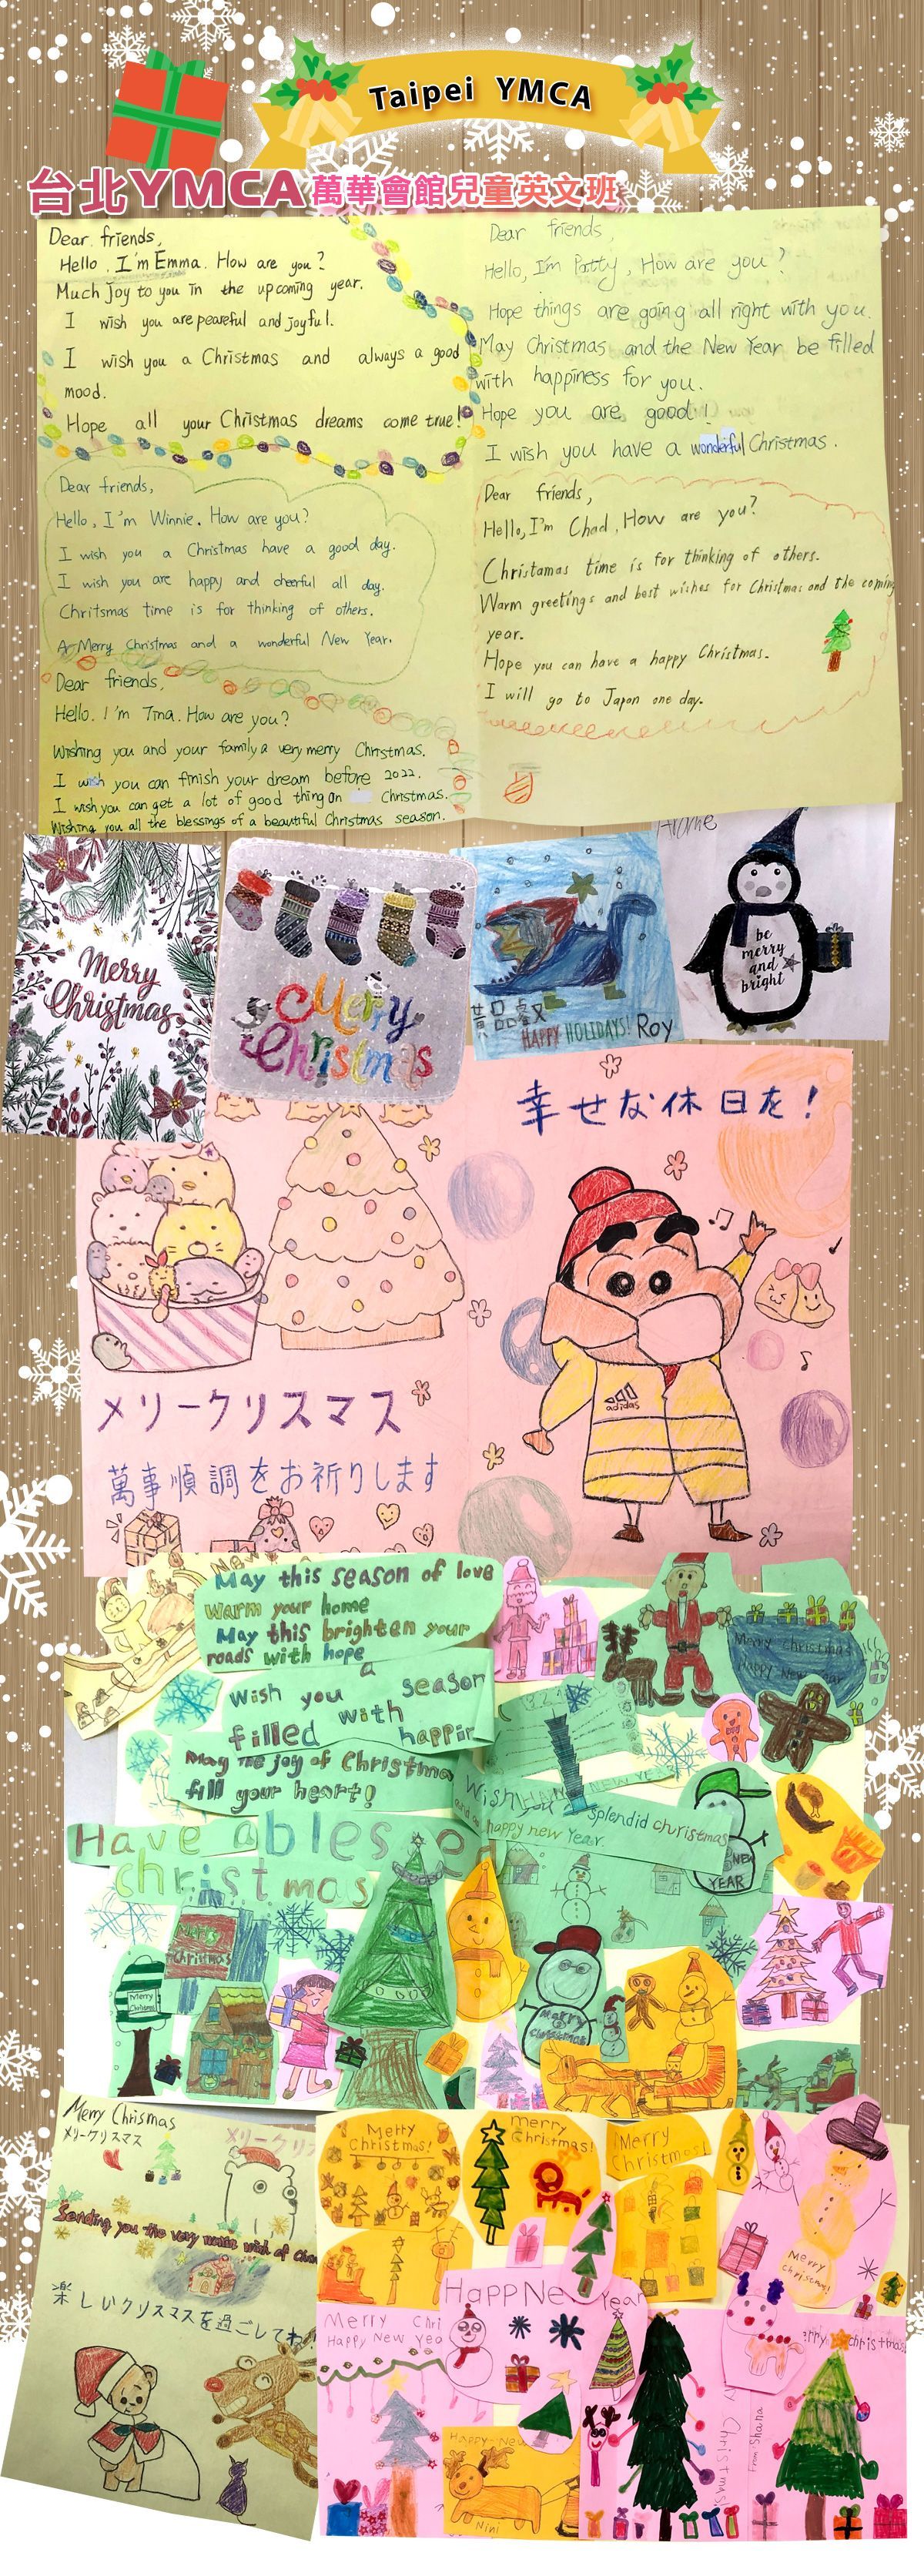 Taipei YMCA
台北YMCA萬華會館兒童英文班
Dear friends,
Hello, I'm Emma. How are you?
Much joy to you in the upcoming year.
I wish you are peaceful and joyful.
I wish you a Christmas and always a good
mood.
Hope all your Christmas dreams come true!
Dear friends,
Hello, I'm Patty, How are you?
Hope things are going all right with you.
May Christmas and the New Year be filled
with happiness for you.
Hope you are good!
I wish you have a wonderful Christmas.
Dear friends,
Hello, I'm Winnie. How are you?
I wish you a Christmas have a good day.
I wish you are happy and cheerful all day.
Chritsmas time is for thinking of others.
A Merry Christmas and a wonderful New Year.
Dear friends,
Hello, I'm Chad, How are you?
Christamas time is for thinking of others.
Warm greetings and best wishes for Christmas and the coming
year.
Hope you can have a happy Christmas.
I will go to Japan one day.
Dear friends,
Hello. I'm Tina. How are you?
Wishing you and your family a very merry Christmas.
I wish you can finish your dream before 2022.
I wish you can get a lot of good thing on Christmas.
Wishing you all the blessings of a beautiful Christmas season.
Merry
Christmas
Merry
Christmas
黃品叡
HAPPY HOLIDAYS! Roy
be
merry
and
bright
幸せな休日を!
adidas
メリークリスマス
萬事順調をお祈りします
New
May this season of love
warm your home
May this brighten your
roads with hope
Wish you a season
filled with
happin
May the joy of Christma
fill your heart!
Have a bles e
christmas
Merry christmas
Happy New Year
Wish you
splendid christmas
happy new Year.
NEW
YEAR
Merry
Christmas
Merry
Christmas
Merry
Christmas
Merry Chrismas
メリークリスマス
メリークリス
Sending you the very warm wish of Chri
楽しいクリスマスを過ごしてね
Merry
Christmas!
merry
Christmas!
Merry
Christmas!
Merry
christmas!
Happ New Year
Merry Chri
Happy New Yea
christmas
Happy New
Nini
Christmas!
From:Shana